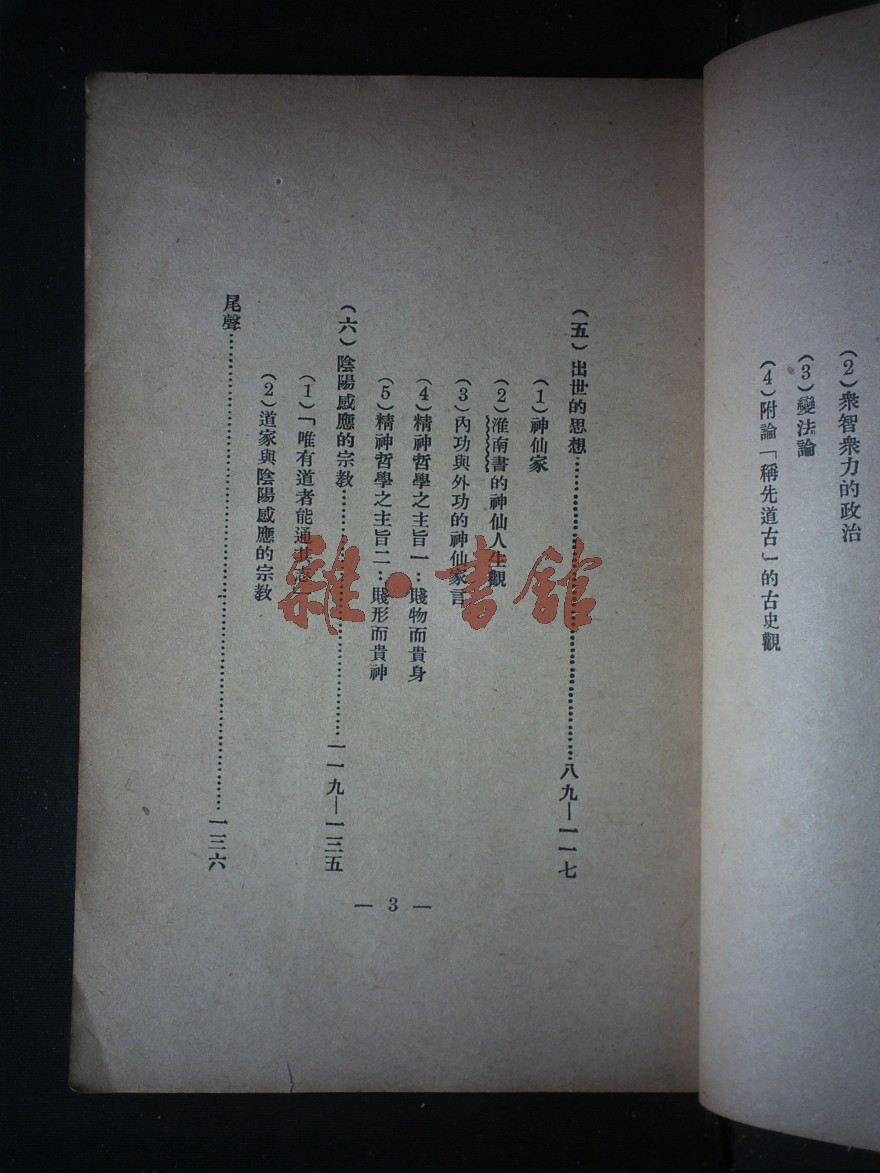 (2)衆智衆力的政治
(3)變法論
(4)附論「稱先道古」的古史觀
(五)出世的思想……八九—一一七
(1)神仙家
(2)淮南書的神仙人生觀
(3)內功與外功的神仙家言
(4)精神哲學之主旨一：賤物而貴身
(5)精神哲學之主旨二：賤形而貴神
(六)陰陽感應的宗教……一一九—一三五
(1)「唯有道者能通其志」
(2)道家與陰陽感應的宗教
尾聲……一三六
— 3 —
雜·書館